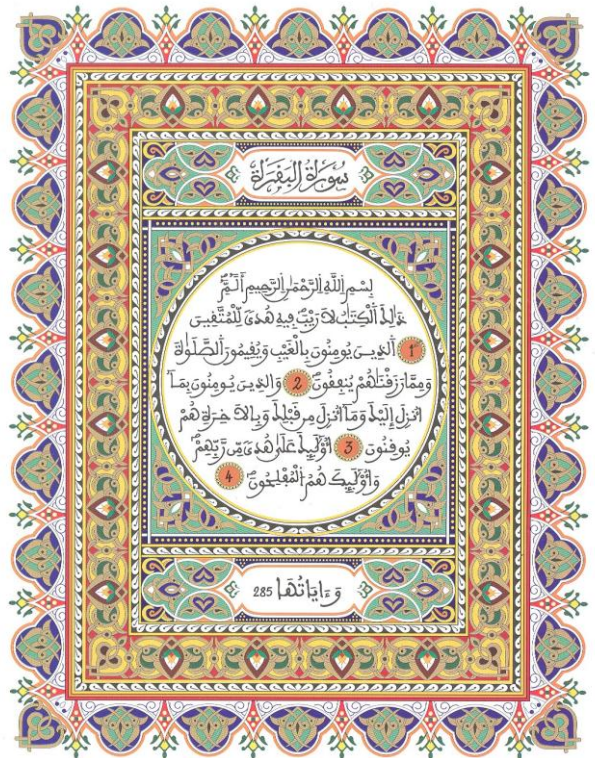 سُورَةُ الْبَقَرَةِ
بِسْمِ اِللَّهِ اِلرَّحْمَٰنِ اِلرَّحِيمِ أَلَٓمِّٓ
ذَٰلِكَ اَلْكِتَٰبُ لَا رَيْبَ فِيهِ هُدىً لِّلْمُتَّقِينَ
1 اَلذِينَ يُومِنُونَ بِالْغَيْبِ وَيُقِيمُونَ اَلصَّلَوٰةَ
وَمِمَّا رَزَقْنَٰهُمْ يُنفِقُونَ 2 وَالذِينَ يُومِنُونَ بِمَا
أُنزِلَ إِلَيْكَ وَمَا أُنزِلَ مِن قَبْلِكَ وَبِالَاخِرَةِ هُمْ
يُوقِنُونَ 3 أُوْلَٰٓئِكَ عَلَىٰ هُدىً مِّن رَّبِّهِمْ
وَأُوْلَٰٓئِكَ هُمُ اُلْمُفْلِحُونَ 4
وَءَايَاتُهَا 285